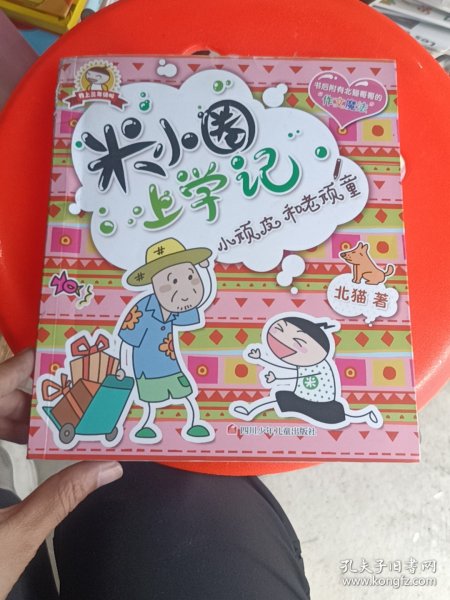 书后附有北猫哥哥的
"作文魔法"
米小圈
上学记
小顽皮和老顽童
北猫 著
米
四川少年儿童出版社
孔夫子旧书网
www.kongfz.com